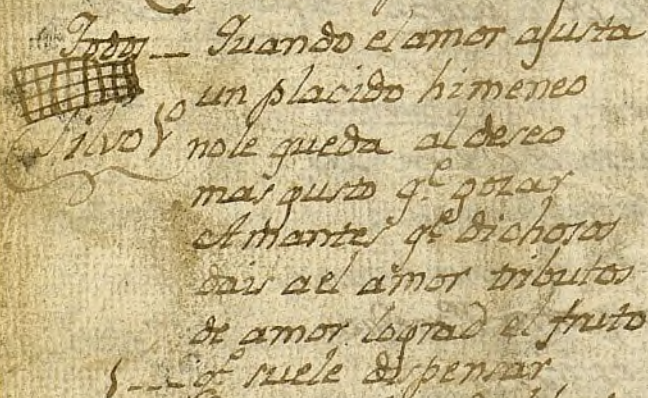 Todos — Quando el amor ajusta
un placido himeneo
Silvo 1º nole queda al deseo
mas gusto q.e gozar
Amantes q.e dichosos
dais a el amor tributos
de amor lograd el fruto
q.e suele dispensar